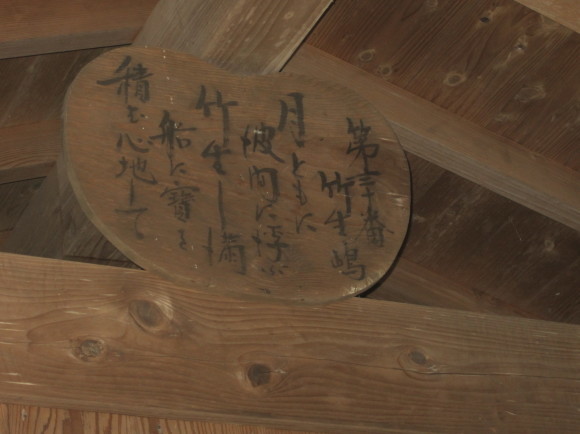 第三十番
竹生嶋
月ともに
波間に浮ぶ
竹生し満
船に寳を
積む心地して